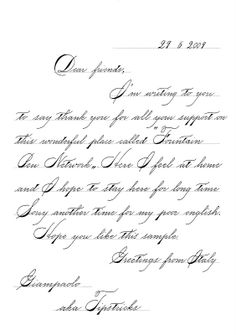 29 6 2009
Dear friends,
I'm writing to you
to say thank you for all your support on
this wonderful place called "Fountain
Pen Network". Here I feel at home
and I hope to stay here for long time
Sorry another time for my poor english.
Hope you like this sample.
Greetings from Italy
Giampaolo
aka Tipstricks